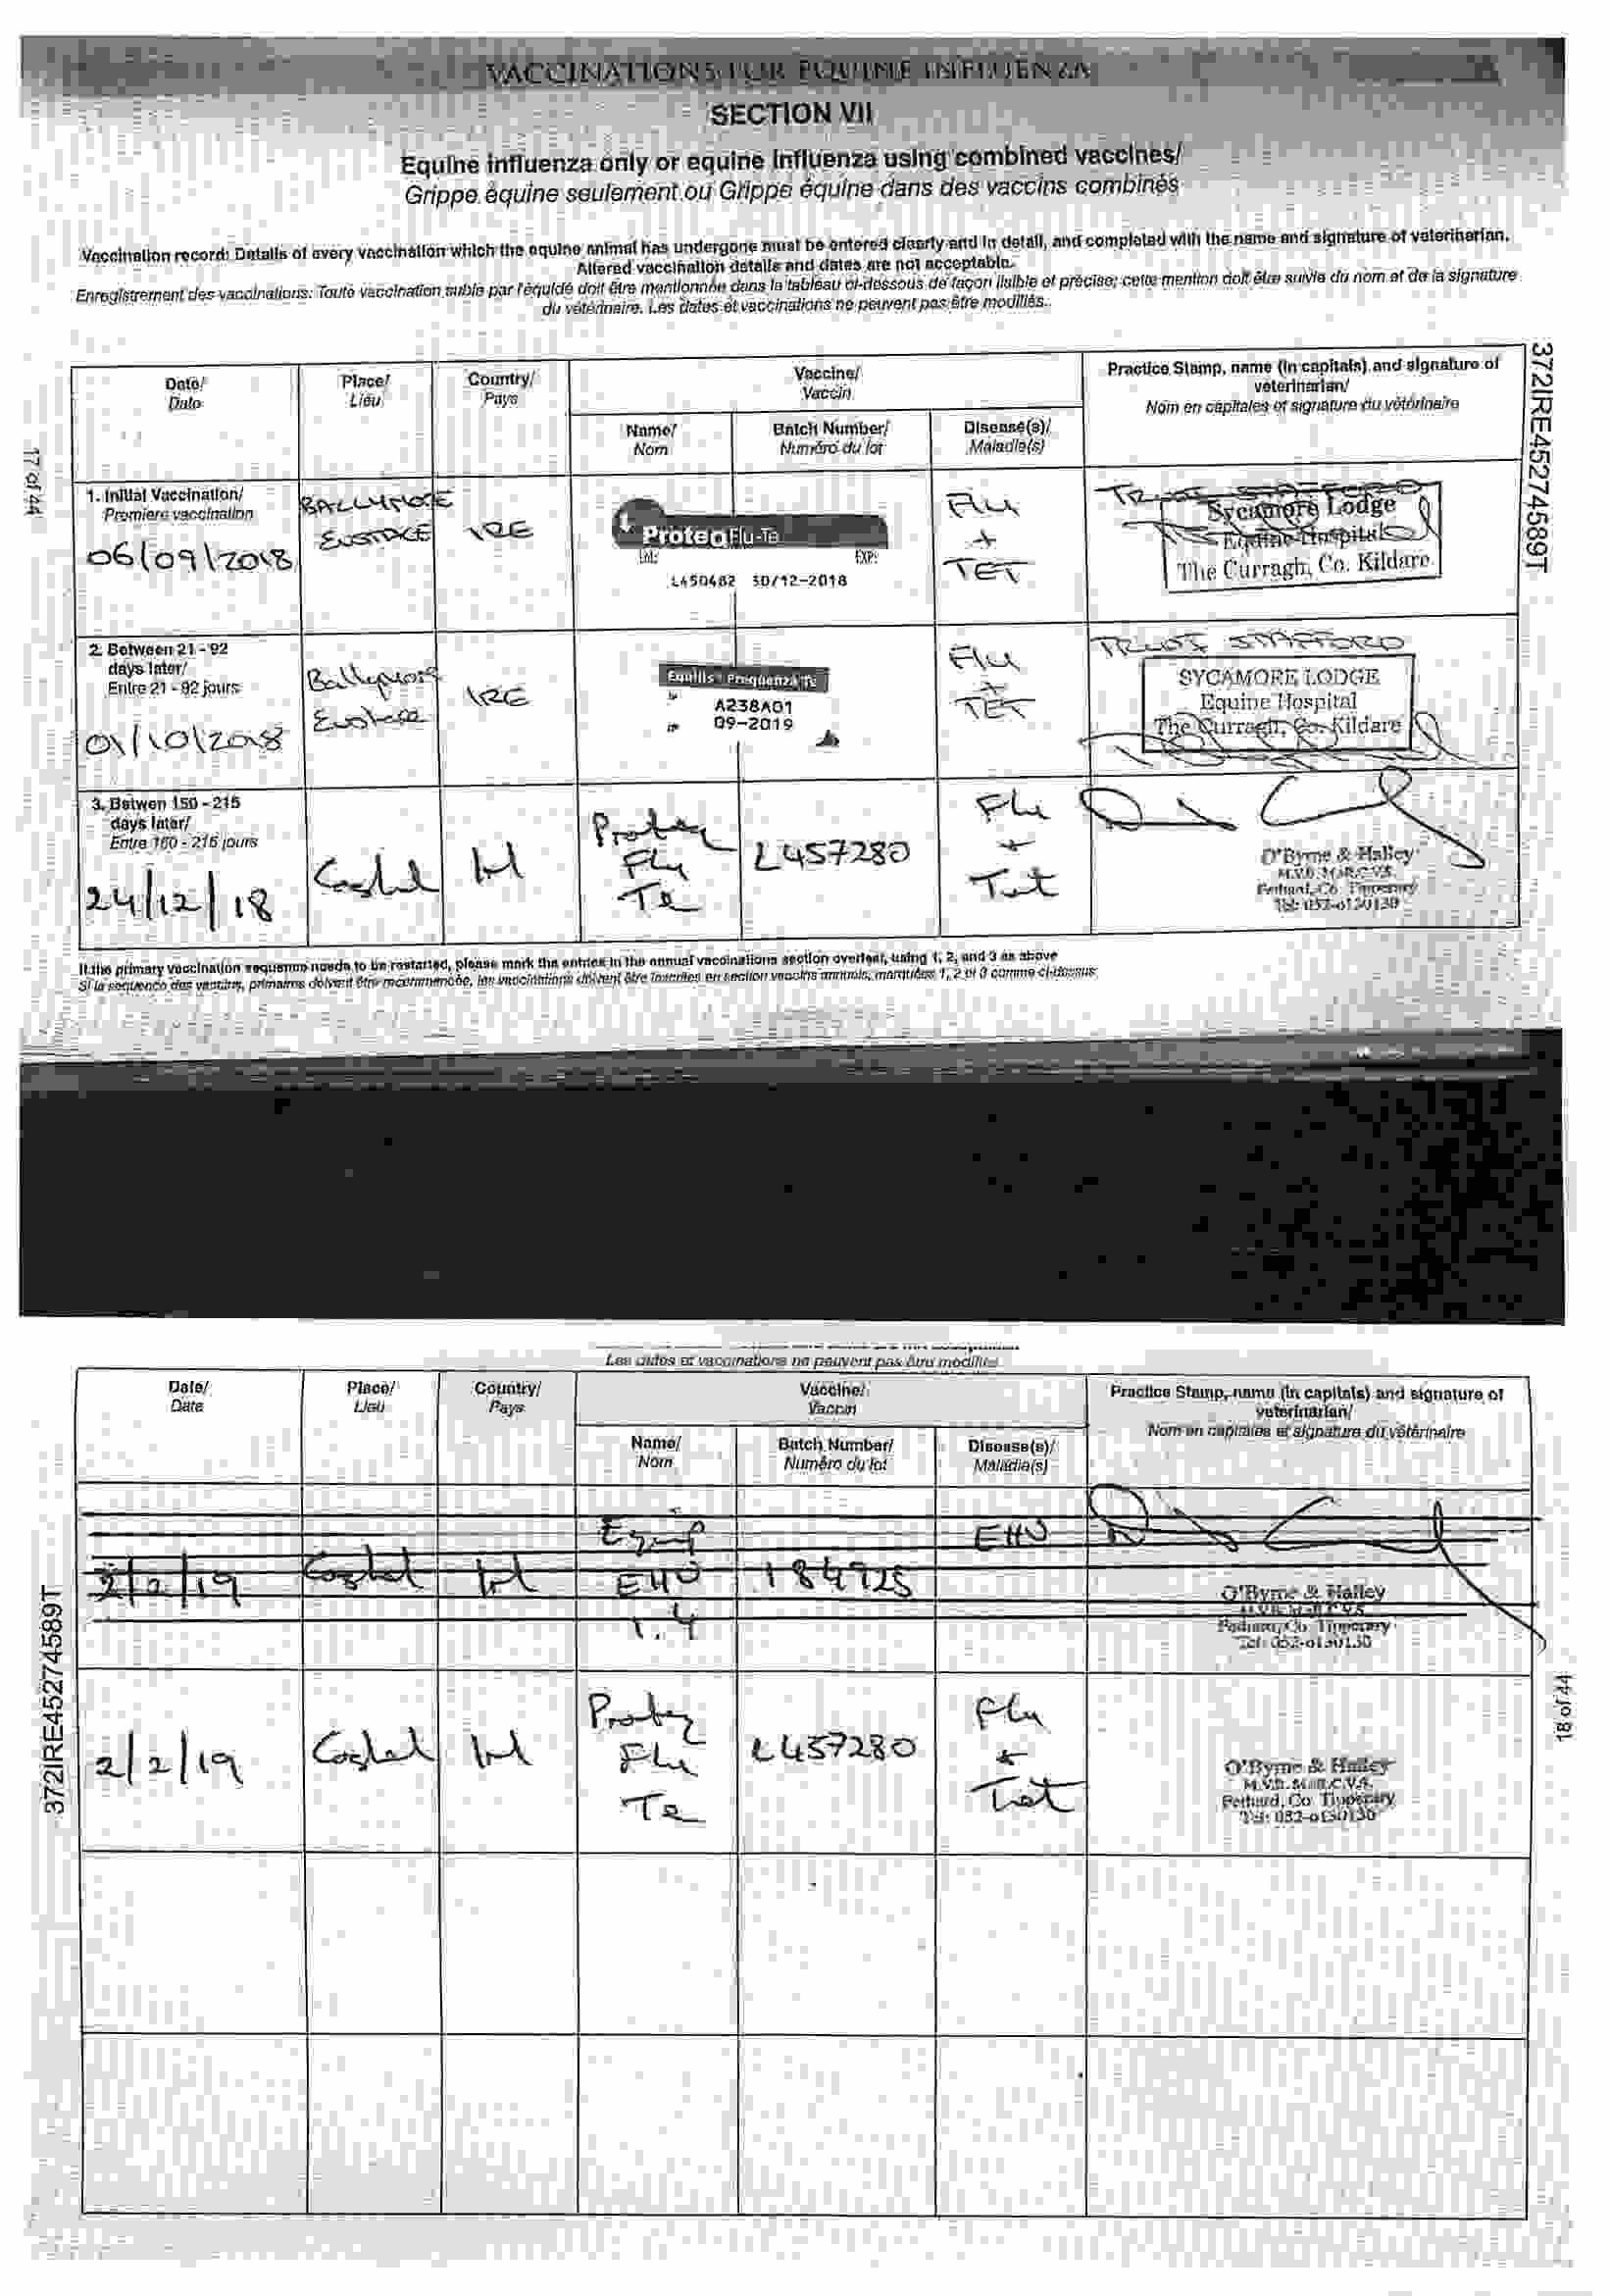 VACCINATIONS FOR EQUINE INFLUENZA
SECTION VII
Equine influenza only or equine influenza using combined vaccines/
Grippe équine seulement ou Grippe équine dans des vaccins combinés
Vaccination record: Details of every vaccination which the equine animal has undergone must be entered clearly and in detail, and completed with the name and signature of veterinarian.
Altered vaccination details and dates are not acceptable.
Enregistrement des vaccinations: Toute vaccination subie par l'équidé doit être mentionnée dans la tableau ci-dessous de façon lisible et précise; cette mention doit être suivie du nom et de la signature
du vétérinaire. Les dates et vaccinations ne peuvent pas être modifiés.
372IRE45274589T
17 of 44
Date/
Date
Place/
Lieu
Country/
Pays
Vaccine/
Vaccin
Name/
Nom
Batch Number/
Numéro du lot
Disease(s)/
Maladie(s)
Practice Stamp, name (in capitals) and signature of
veterinarian/
Nom en capitales et signature du vétérinaire
1. Initial Vaccination/
Premiere vaccination
06/09/2018
BALLYMORE
EUSTACE
IRE
ProteqFlu-Te
Lot:
EXP:
L450482 30/12-2018
Flu
+
TET
STAFFORD
Sycamore Lodge
Equine Hospital
The Curragh, Co. Kildare
2. Between 21 - 92
days later/
Entre 21 - 92 jours
01/10/2018
Ballymore
Eustace
IRE
Equilis Prequenza Te
A238A01
09-2019
Flu
+
TET
STAFFORD
SYCAMORE LODGE
Equine Hospital
The Curragh, Co. Kildare
3. Betwen 150 - 215
days later/
Entre 150 - 215 jours
24/12/18
Cashel
Irl
Proteq
Flu
Te
L457280
Flu
+
Tet
O'Byrne & Halley
M.V.B. M.R.C.V.S.
Fethard, Co. Tipperary
Tel: 052-6130130
If the primary vaccination sequence needs to be restarted, please mark the entries in the annual vaccinations section overleaf, using 1, 2, and 3 as above
Si la sequence des vaccins, primaires doivent être recommencée, les vaccinations doivent être inscrites en section vaccins annuels, marquées 1, 2 et 3 comme ci-dessus
Les dates et vaccinations ne peuvent pas être modifiés
372IRE45274589T
18 of 44
Date/
Date
Place/
Lieu
Country/
Pays
Vaccine/
Vaccin
Name/
Nom
Batch Number/
Numéro du lot
Disease(s)/
Maladie(s)
Practice Stamp, name (in capitals) and signature of
veterinarian/
Nom en capitales et signature du vétérinaire
2/2/19
Cashel
Irl
Equip
EHV
1.4
184925
EHV
O'Byrne & Halley
M.V.B. M.R.C.V.S.
Fethard, Co. Tipperary
Tel: 052-6130130
2/2/19
Cashel
Irl
Proteq
Flu
Te
L457280
Flu
+
Tet
O'Byrne & Halley
M.V.B. M.R.C.V.S.
Fethard, Co. Tipperary
Tel: 052-6130130